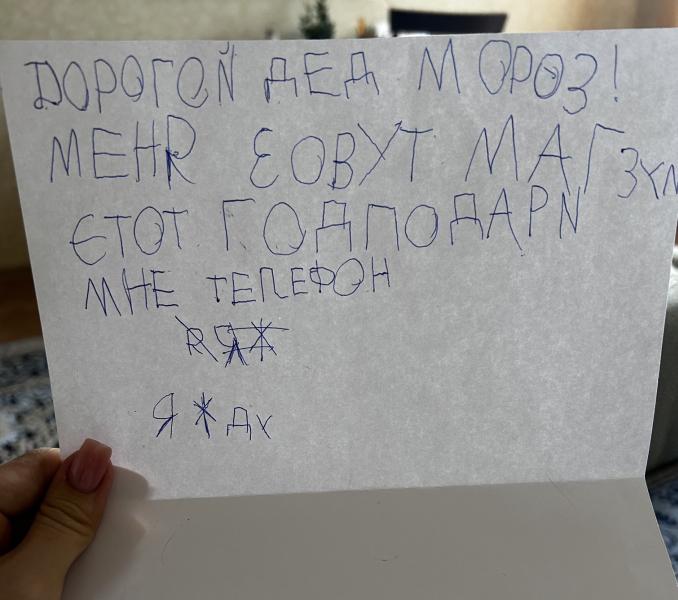 ДОРОГОЙ ДЕД МОРОЗ!
МЕНЯ ЗОВУТ МАГЗУМ
ЄТОТ ГОД ПОДАРИ
МНЕ ТЕЛЕФОН
Я ЖДУ